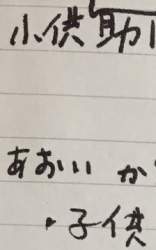 小供 助
あおいい か
・子供